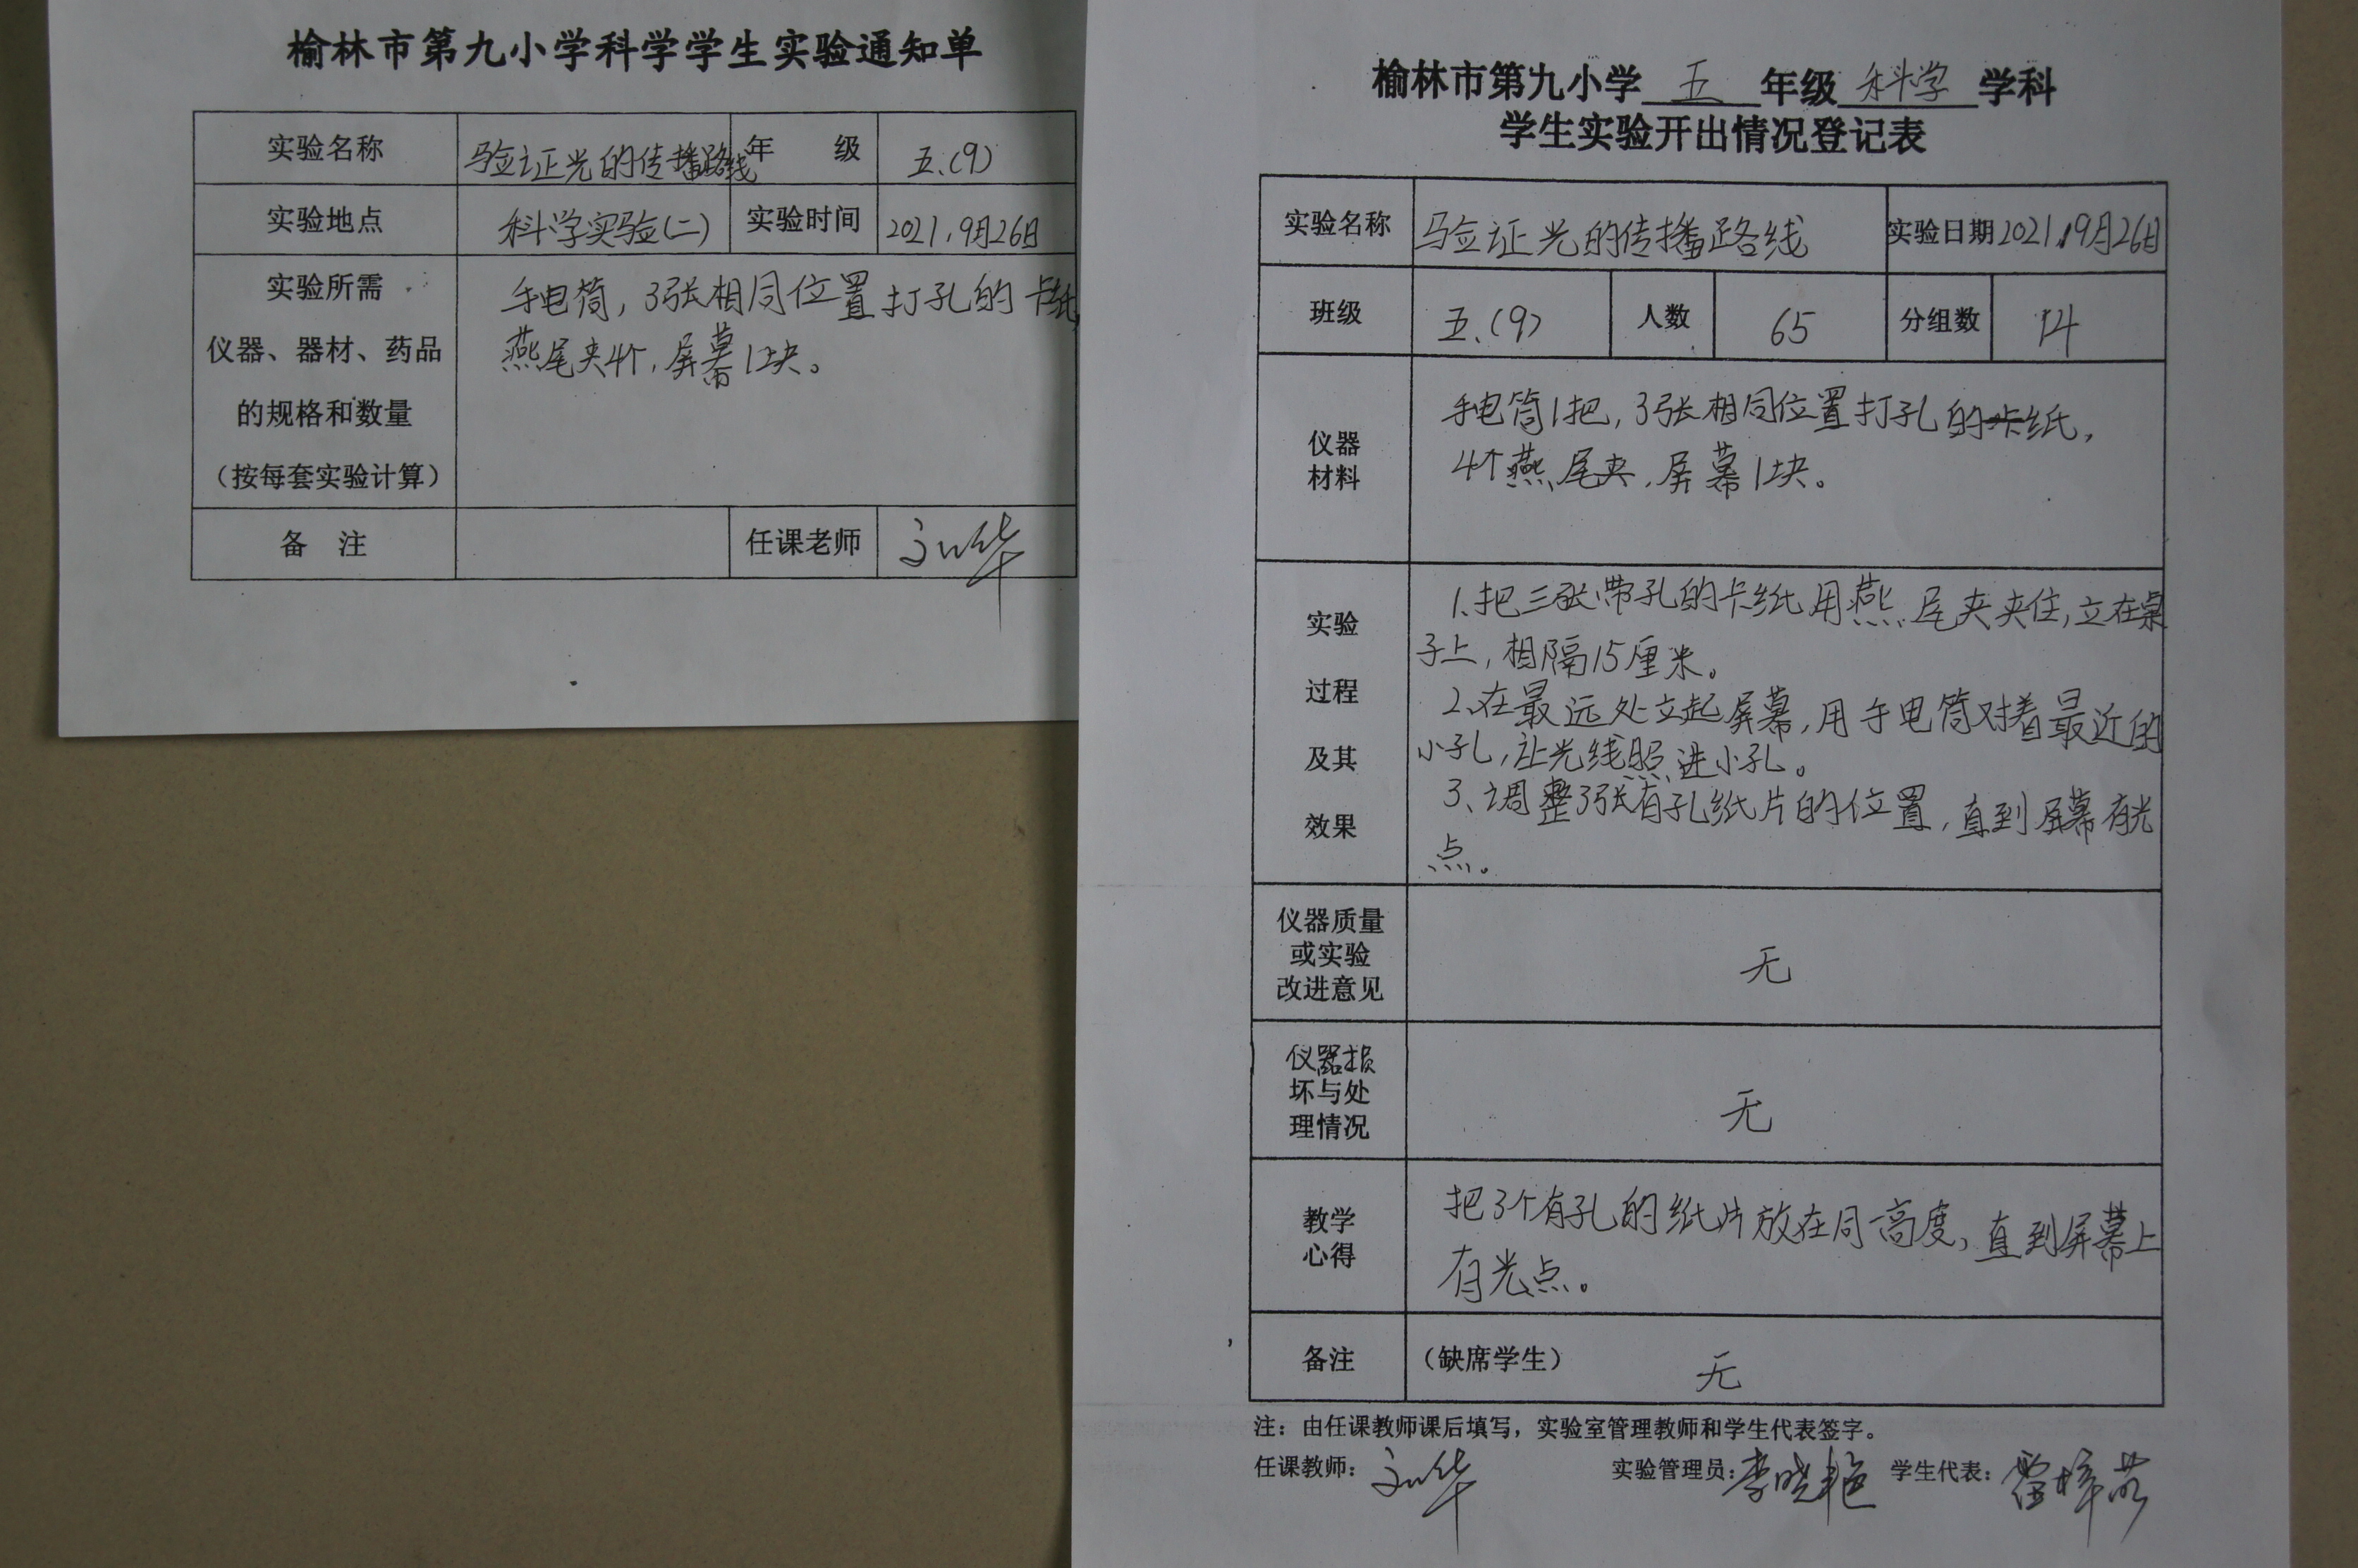 榆林市第九小学科学学生实验通知单
实验名称 验证光的传播路线 年 级 五.(9)
实验地点 科学实验(二) 实验时间 2021.9月26日
实验所需
仪器、器材、药品
的规格和数量
（按每套实验计算）
手电筒，3张相同位置打孔的卡纸，
燕尾夹4个，屏幕1块。
备 注 任课老师 刘华
榆林市第九小学 五 年级 科学 学科
学生实验开出情况登记表
实验名称 验证光的传播路线 实验日期 2021.9月26日
班级 五.(9) 人数 65 分组数 14
仪器
材料
手电筒1把，3张相同位置打孔的卡纸，
4个燕尾夹，屏幕1块。
实验
过程
及其
效果
1、把三张带孔的卡纸用燕尾夹夹住，立在桌
子上，相隔15厘米。
2、在最远处立起屏幕，用手电筒对着最近的
小孔，让光线照进小孔。
3、调整3张有孔纸片的位置，直到屏幕有光
点。
仪器质量
或实验
改进意见
无
仪器损
坏与处
理情况
无
教学
心得
把3个有孔的纸片放在同一高度，直到屏幕上
有光点。
备注 （缺席学生） 无
注：由任课教师课后填写，实验室管理教师和学生代表签字。
任课教师：刘华 实验管理员：李晓艳 学生代表：